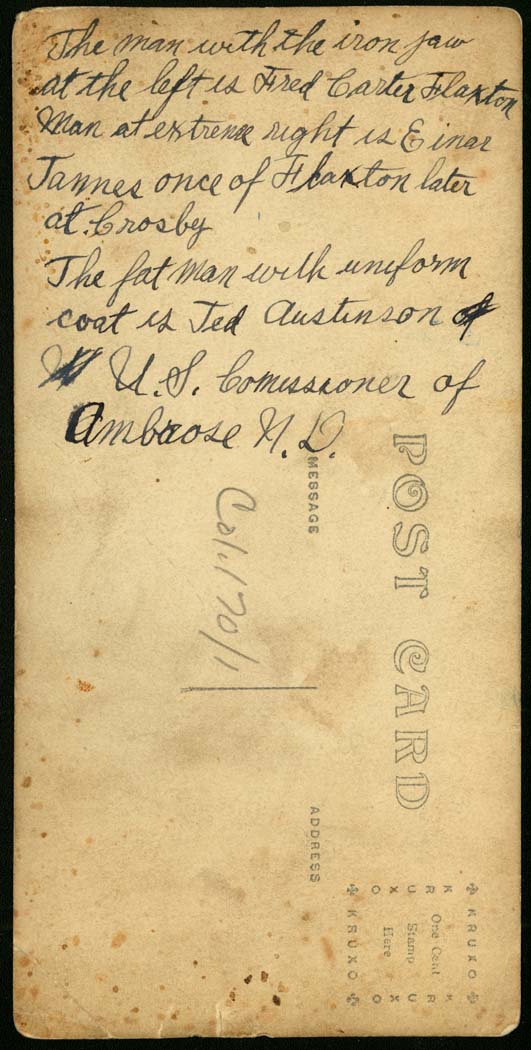 The man with the iron jaw
at the left is Fred Carter Flaxton
Man at extreme right is Einar
Jannes once of Flaxton later
at Crosby
The fat man with uniform
coat is Ted Austinson of
U.S. Comissioner of
Ambrose N.D.
POST CARD
MESSAGE
ADDRESS
Col.170/1
KRUXO
KRUXO
One Cent
Stamp
Here
KRUXO
KRUXO